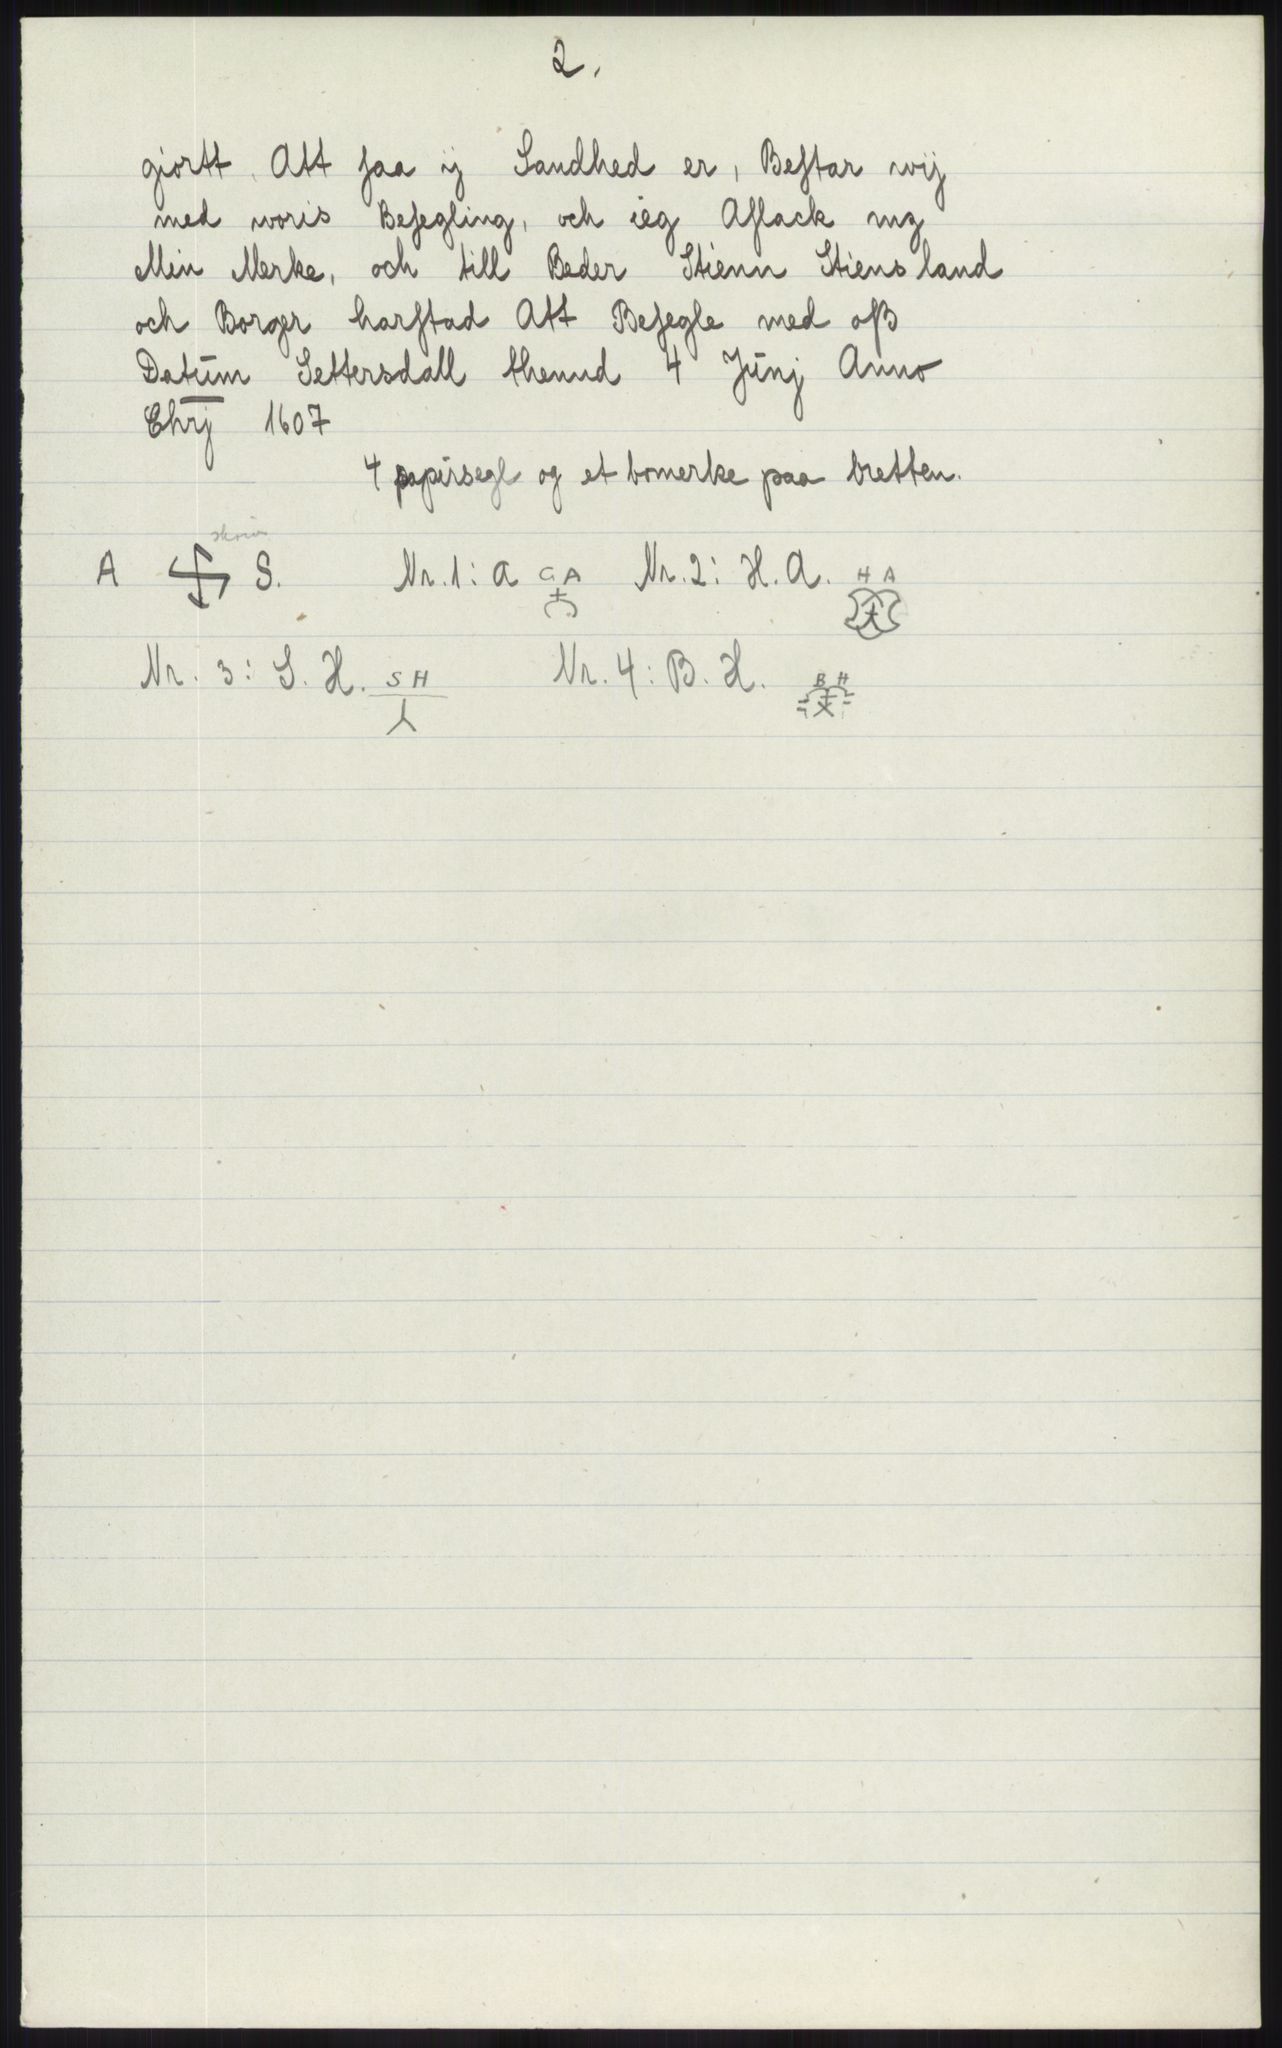 2.
giortt, Att saa ij Sandhed er, Bestar wij
med woris Besegling, och ieg Aslack mz
Min Merke, och till Beder Stienn Stiensland
och Borger harstad Att Besegle med oß
Datum Settersdall thennd 4 Junj Anno
Chrj 1607
4 papirsegl og et bomerke paa bretten.
A S. Nr. 1: a G A Nr. 2: H. A. H A
Nr. 3: S. H. S H Nr. 4: B. H. B H